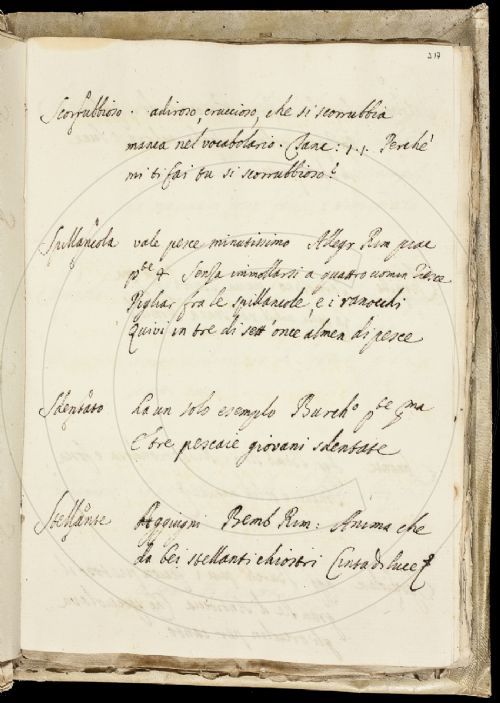 217
Scorrubbioso. adiroso, cruccioso, che si scorrubbia
manca nel vocabolario. Clane: 1.1. Perché
mi ti fai tu si scorrubbioso?
Spillancola vale pesce minutissimo Allegr. Rim
pte 4 Senza immollarsi a quattro uomin riesce
Pigliar fra le spillancole, e i ranocchi
Quivi in tre dì sett'once almen di pesce
Sdentato ha un solo esempio Burcho pte pma
E tre pescaie giovani sdentate
Stellante Aggiugni Bemb Rim: Anima che
da bei stellanti chiostri Cinta di luce